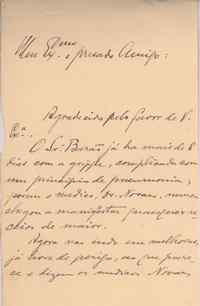 Meu Ex.mo e presado Amigo:
Agradecido pelo favor de V.
Ex.ª.
O Sr. Barão já ha mais de 8
dias com a grippe, complicada com
um principio de pneumonia,
porem o medico, Dr. Novaes, nunca
chegou a manifestar
de maior.
Agora vae indo em melhoras,
já livre de perigo, ao que parece
e o dizem os medicos Novaes